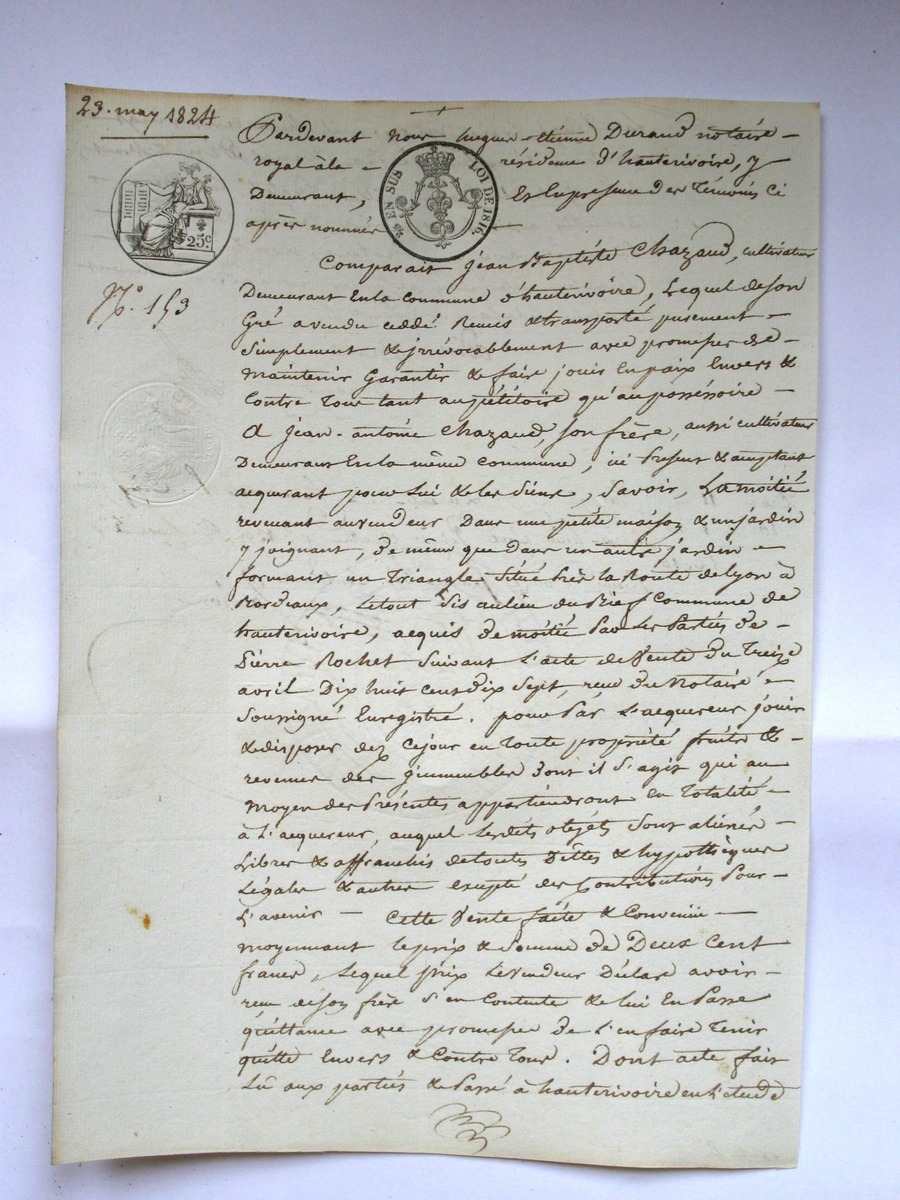 23. may 1824
Pardevant nous hugues-etienne Durand notaire
royal à la résidence d'hauterivoire, y
Demeurant, Et En presence des Témoins Ci
après nommés
EN SUS LOI DE 1816.
25c.
N.º 153
Comparait jean Baptiste Chazaud, cultivateur
Demeurant En la commune d'hauterivoire, Lequel de son
Gré a vendu ceddé Remis & transporté purement
Simplement & jrrévocablement avec promesse de
maintenir Garantir & faire jouir En paix Envers &
Contre Tous tant au pétitoire qu'au posséssoire
A jean-antoine Chazaud, son frère, aussi cultivateur
Demeurant En la même commune, ici Présent & acceptant
acquerant pour Lui & les Siens, Savoir, La moitié
revenant au vendeur Dans une petite maison & un jardin
y joignant, de même que dans un autre jardin
formant un Triangle Situé Près la Route de Lyon à
Bordeaux, Le tout Sis au lieu du Rief Commune de
hauterivoire, acquis de moitié Par Les Parties de
Pierre Rochet Suivant L'acte de Vente du Treize
avril Dix huit cent dix Sept, reçu du Notaire
Soussigné Enregistré. pour Par L'acquereur jouir
& disposer dez Cejour en Toute propriété fruits &
revenus des jimmeubles Dont il S'agit qui au
moyen des Présentes appartiendront en Totalité
à L'acquereur, auquel Lesdits objéts Sont alienés
Libres & affranchis de toutes Dêttes & hypothèques
Légales & autres excepté des Contributions Pour
L'avenir Cette Vente faite & Convenüe
moyennant Le prix & Somme de Deux Cent
francs, Lequel prix Le Vendeur Déclare avoir
recu de Son frère S'en Contente & lui En Passe
quittance avec promesse de L'en faire Tenir
quitte Envers & Contre Tous. Dont acte fait
Lû aux parties & Passé à hauterivoire en L'étude